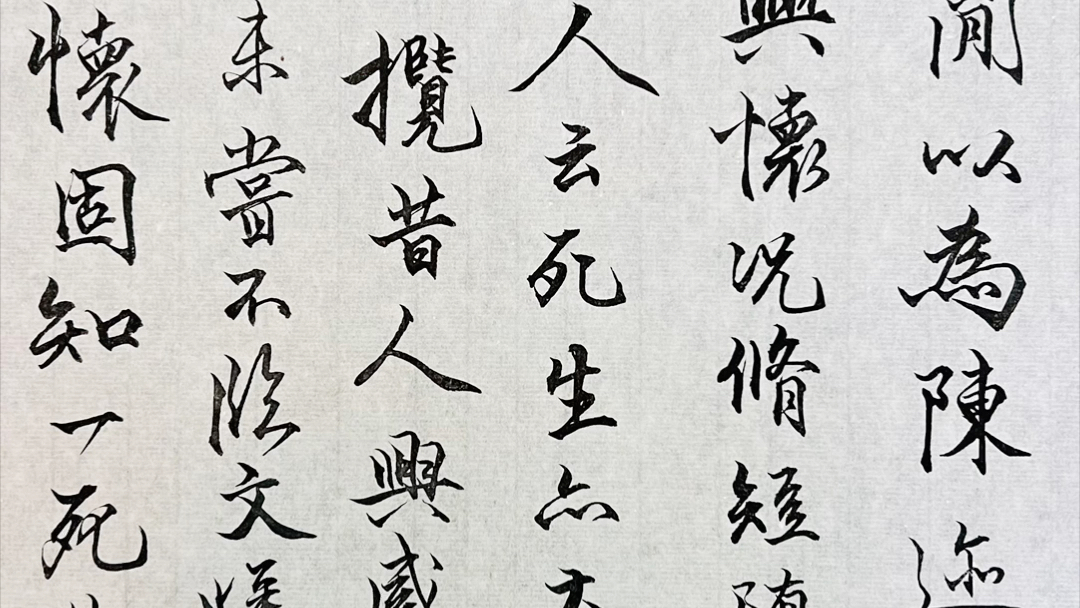 閒以為陳迹
興懷況脩短隨
人云死生亦大
攬昔人興感
未嘗不臨文嗟
懷固知一死